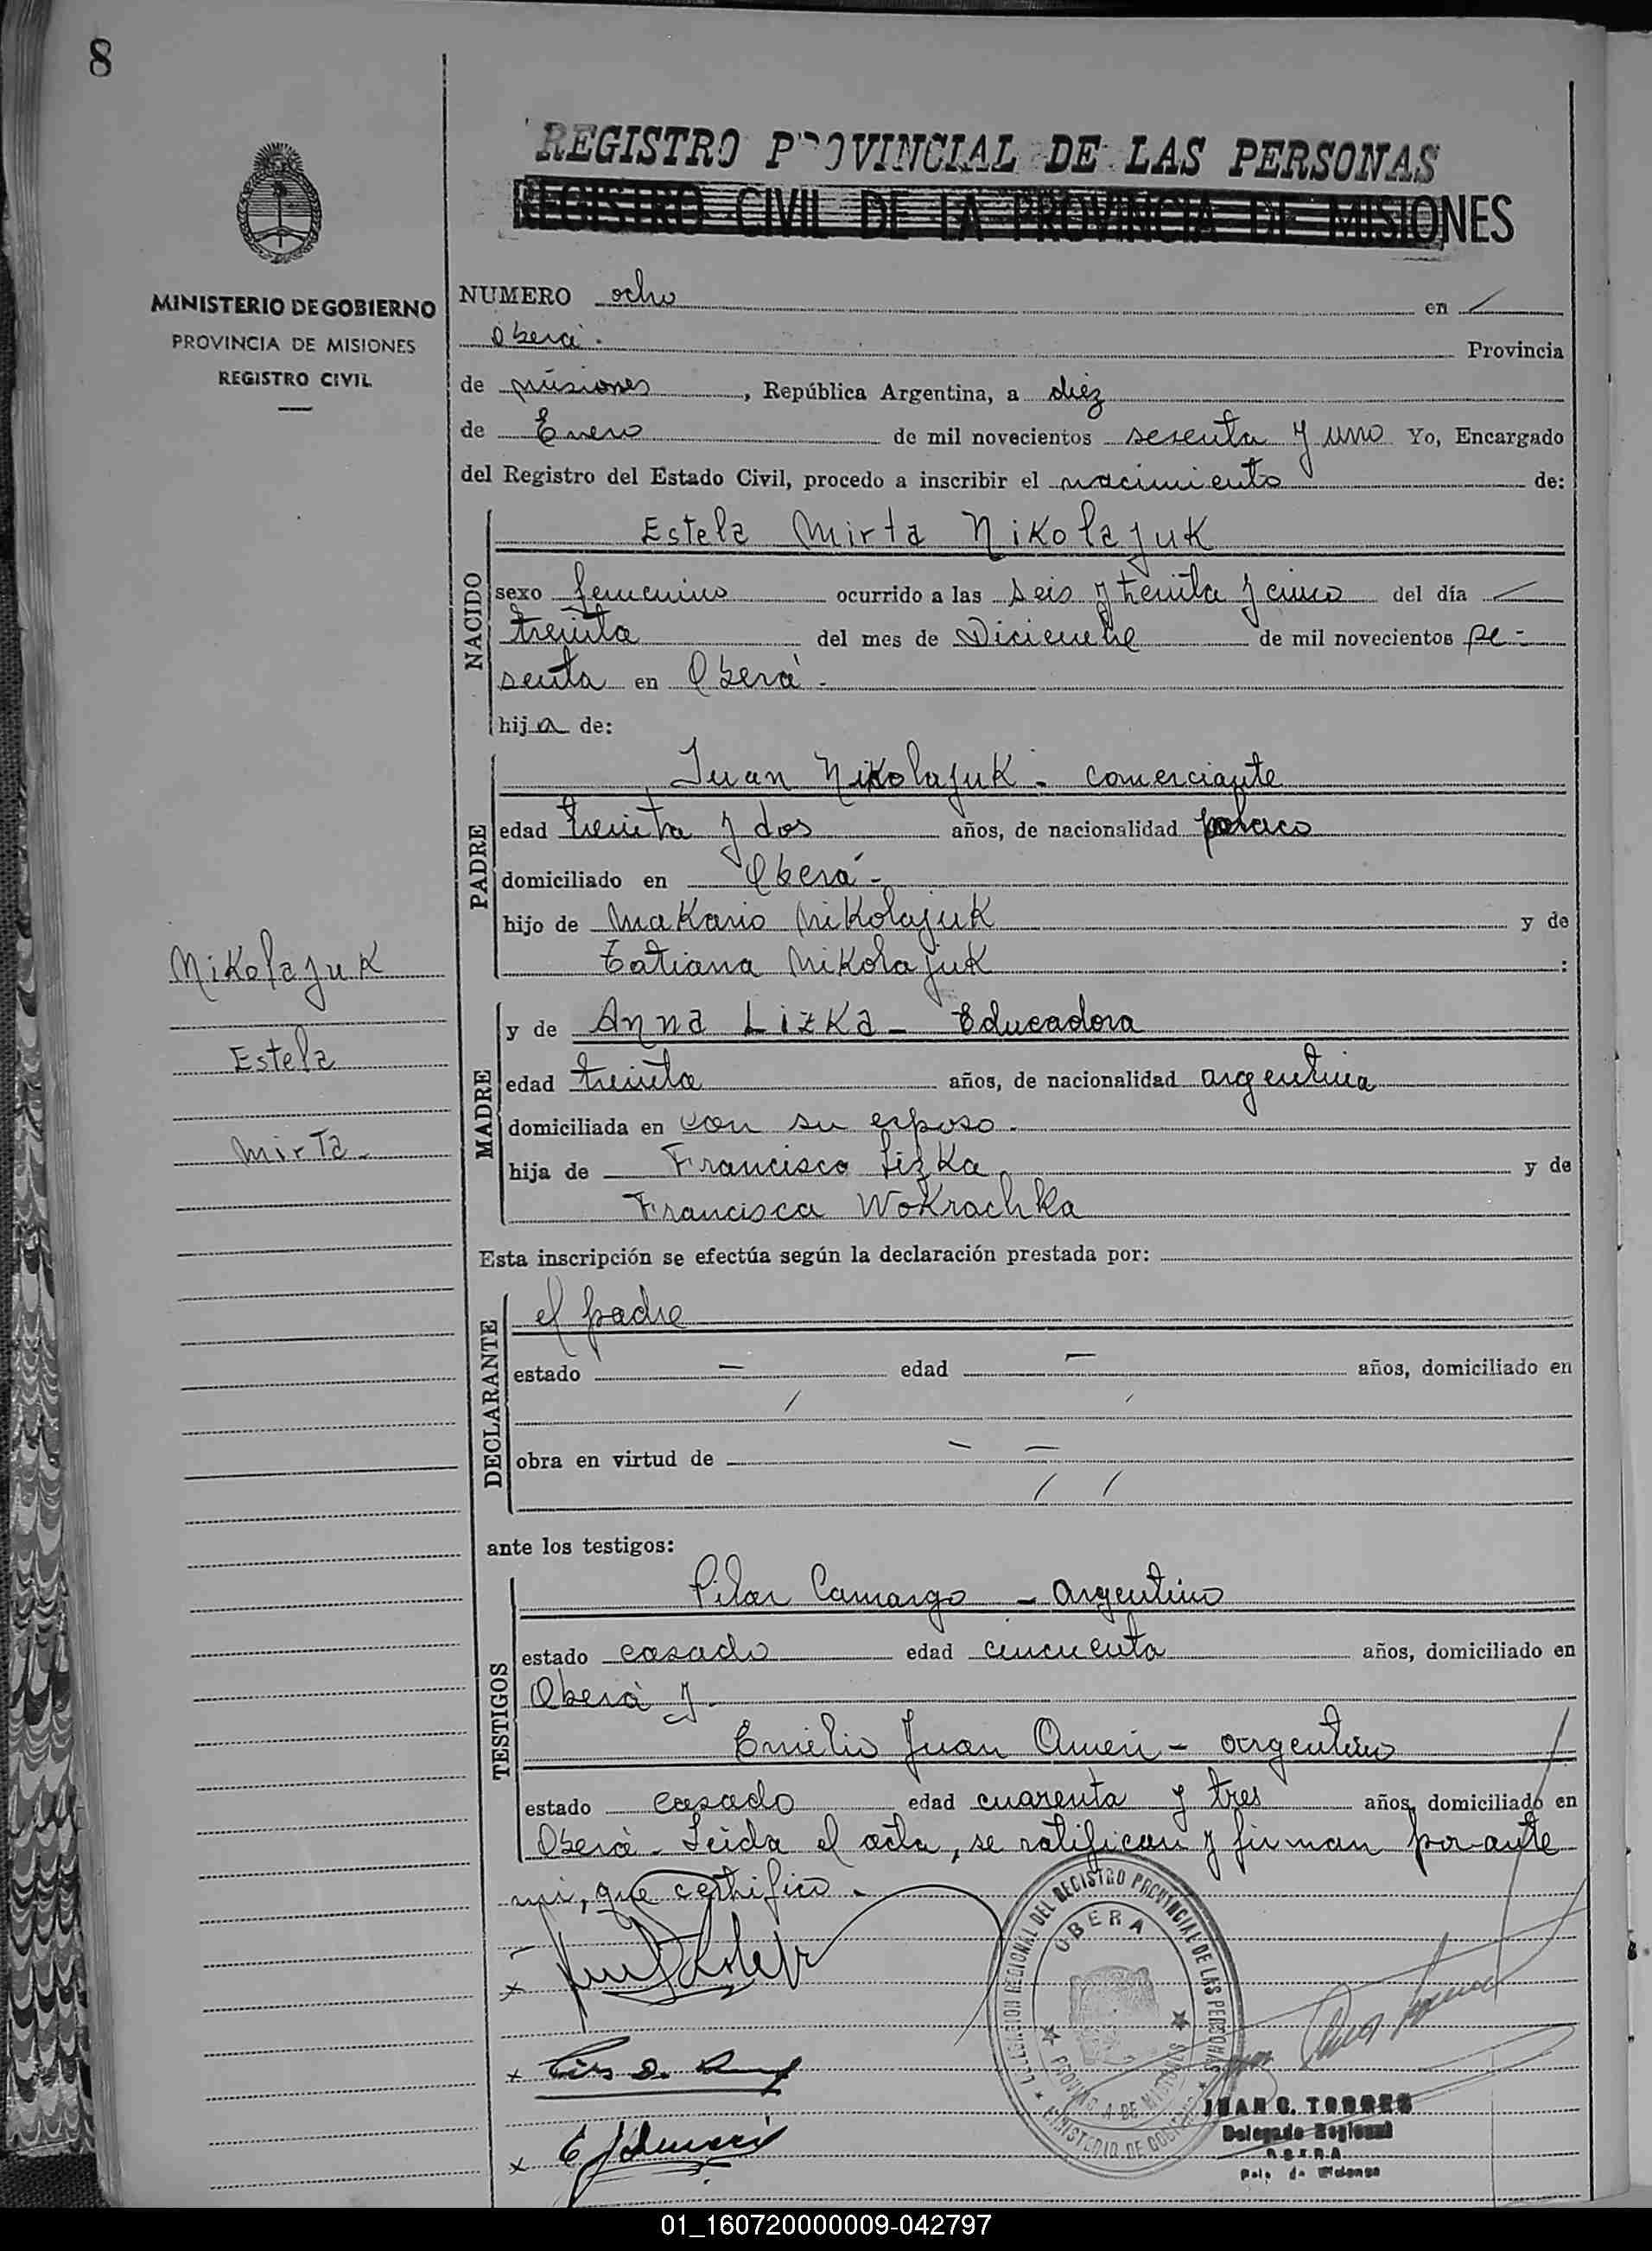 8
REGISTRO PROVINCIAL DE LAS PERSONAS
REGISTRO CIVIL DE LA PROVINCIA DE MISIONES
MINISTERIO DE GOBIERNO
PROVINCIA DE MISIONES
REGISTRO CIVIL
NUMERO ocho en
Oberá. Provincia
de misiones, República Argentina, a diez
de Enero de mil novecientos sesenta y uno Yo, Encargado
del Registro del Estado Civil, procedo a inscribir el nacimiento de:
NACIDO
Estela Mirta Nikolajuk
sexo femenino ocurrido a las seis y treinta y cinco del día
treinta del mes de Diciembre de mil novecientos se-
senta en Oberá.-
hija de:
PADRE
Juan Nikolajuk - comerciante
edad treinta y dos años, de nacionalidad polaco
domiciliado en Oberá -
hijo de Makario Nikolajuk y de
Tatiana Nikolajuk :
Nikolajuk
Estela
Mirta -
MADRE
y de Anna Lizka - Educadora
edad treinta años, de nacionalidad argentina
domiciliada en con su esposo.
hija de Francisco Lizka y de
Francisca Wokrachka
Esta inscripción se efectúa según la declaración prestada por:
DECLARANTE
el padre
estado - edad - años, domiciliado en
obra en virtud de - -
ante los testigos:
TESTIGOS
Pilar Camargo - argentino
estado casado edad cincuenta años, domiciliado en
Oberá y -
Emilio Juan Ameri - argentino
estado casado edad cuarenta y tres años, domiciliado en
Oberá - Leida el acta, se ratifican y firman por ante
mi, que certifico.
DELEGACION REGIONAL DEL REGISTRO PROVINCIAL DE LAS PERSONAS
OBERA
PROVINCIA DE MISIONES
MINISTERIO DE GOBIERNO
JUAN C. TORRES
Delegado Regional
OBERA
Pcia. de Misiones
01_160720000009-042797